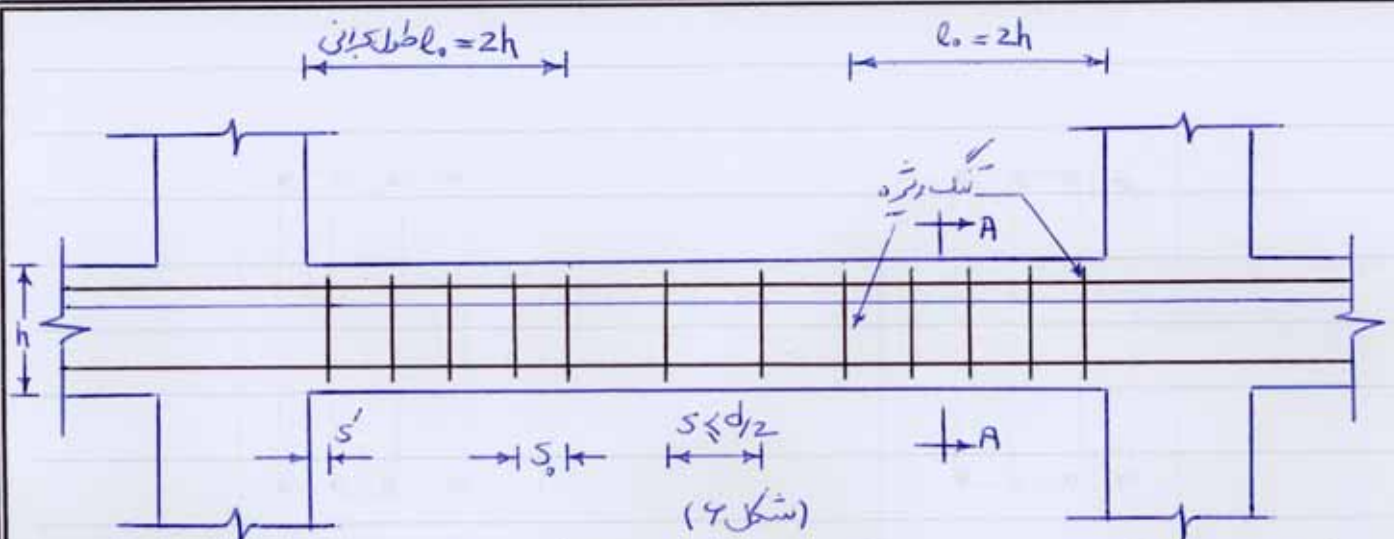 طول بحرانی l₀ = 2h
l₀ = 2h
تنگ ویژه
A
h
S'
S₀
S ⩽ d/2
A
(شکل ۶)